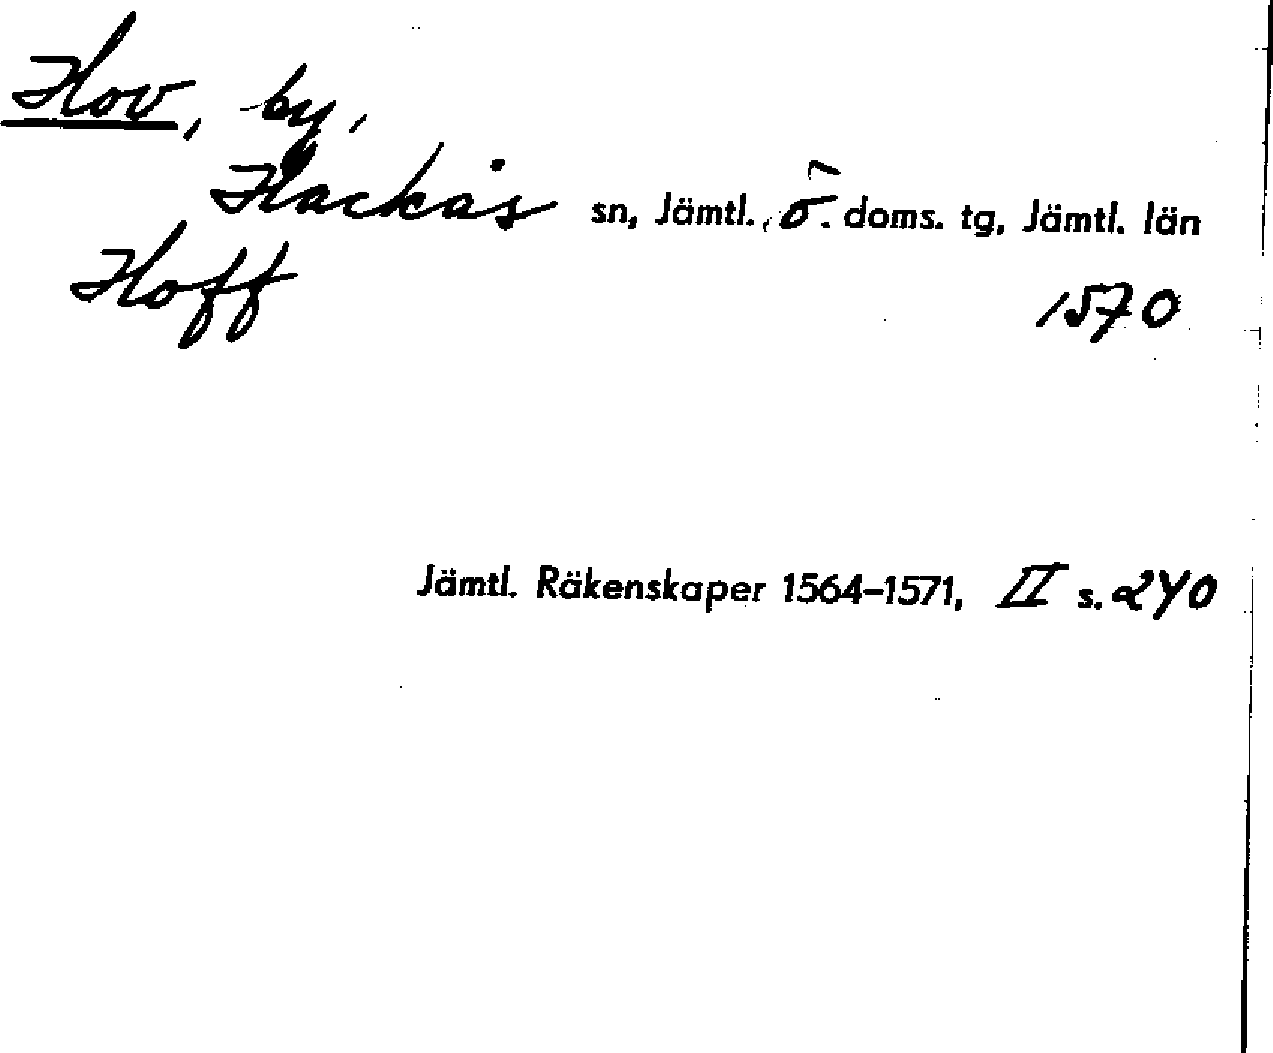 Hov, by,
Hackås sn, Jämtl. ö. doms. tg, Jämtl. län
Hoff 1570
Jämtl. Räkenskaper 1564–1571, II s. 240